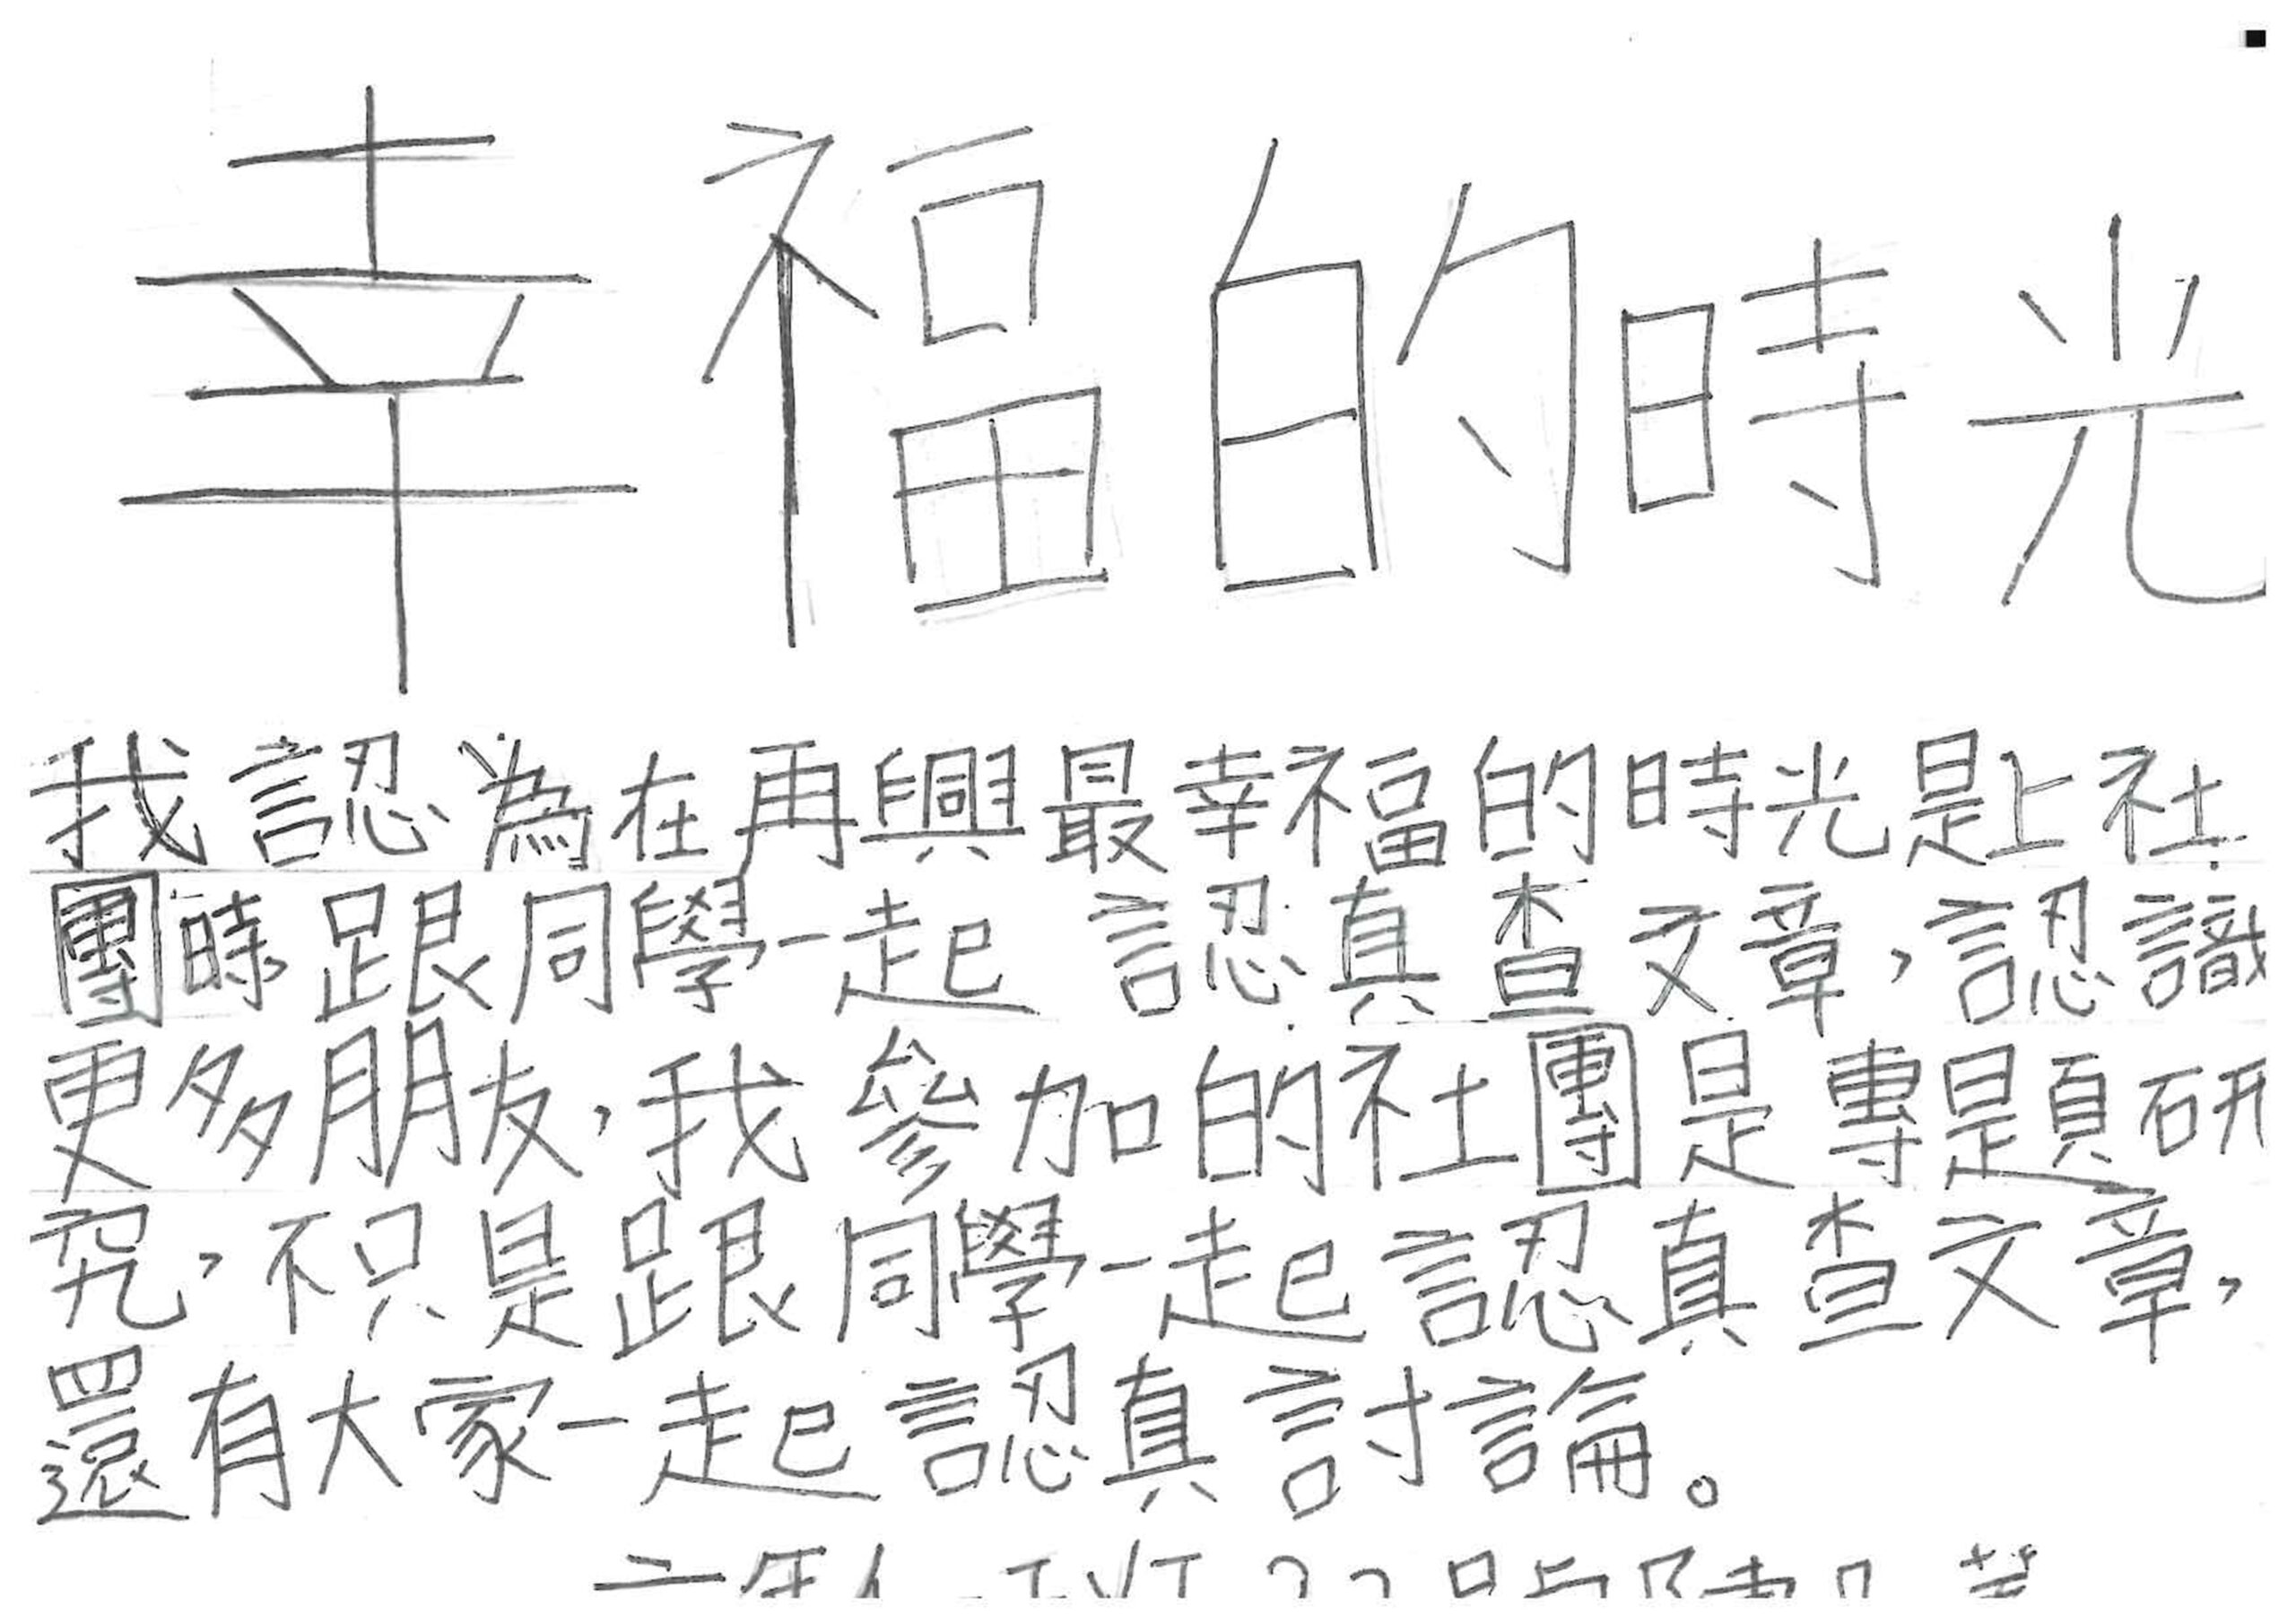 幸福的時光
我認為在再興最幸福的時光是上社
團時跟同學一起認真查文章，認識
更多朋友，我參加的社團是專題研
究，不只是跟同學一起認真查文章，
還有大家一起認真討論。